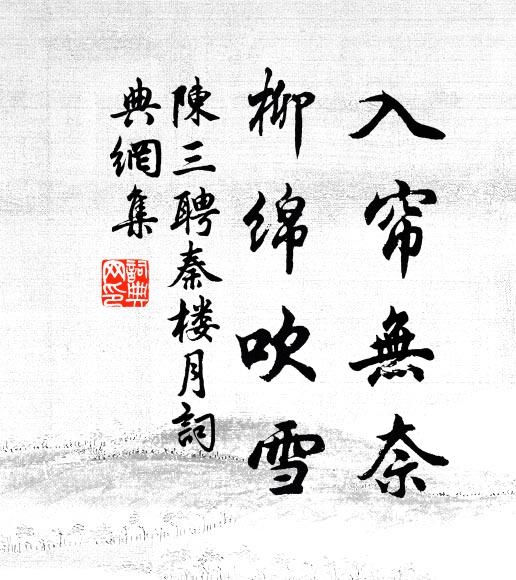 入帘無奈
柳綿吹雪
陳三聘秦楼月詞
典網集
詞典网印